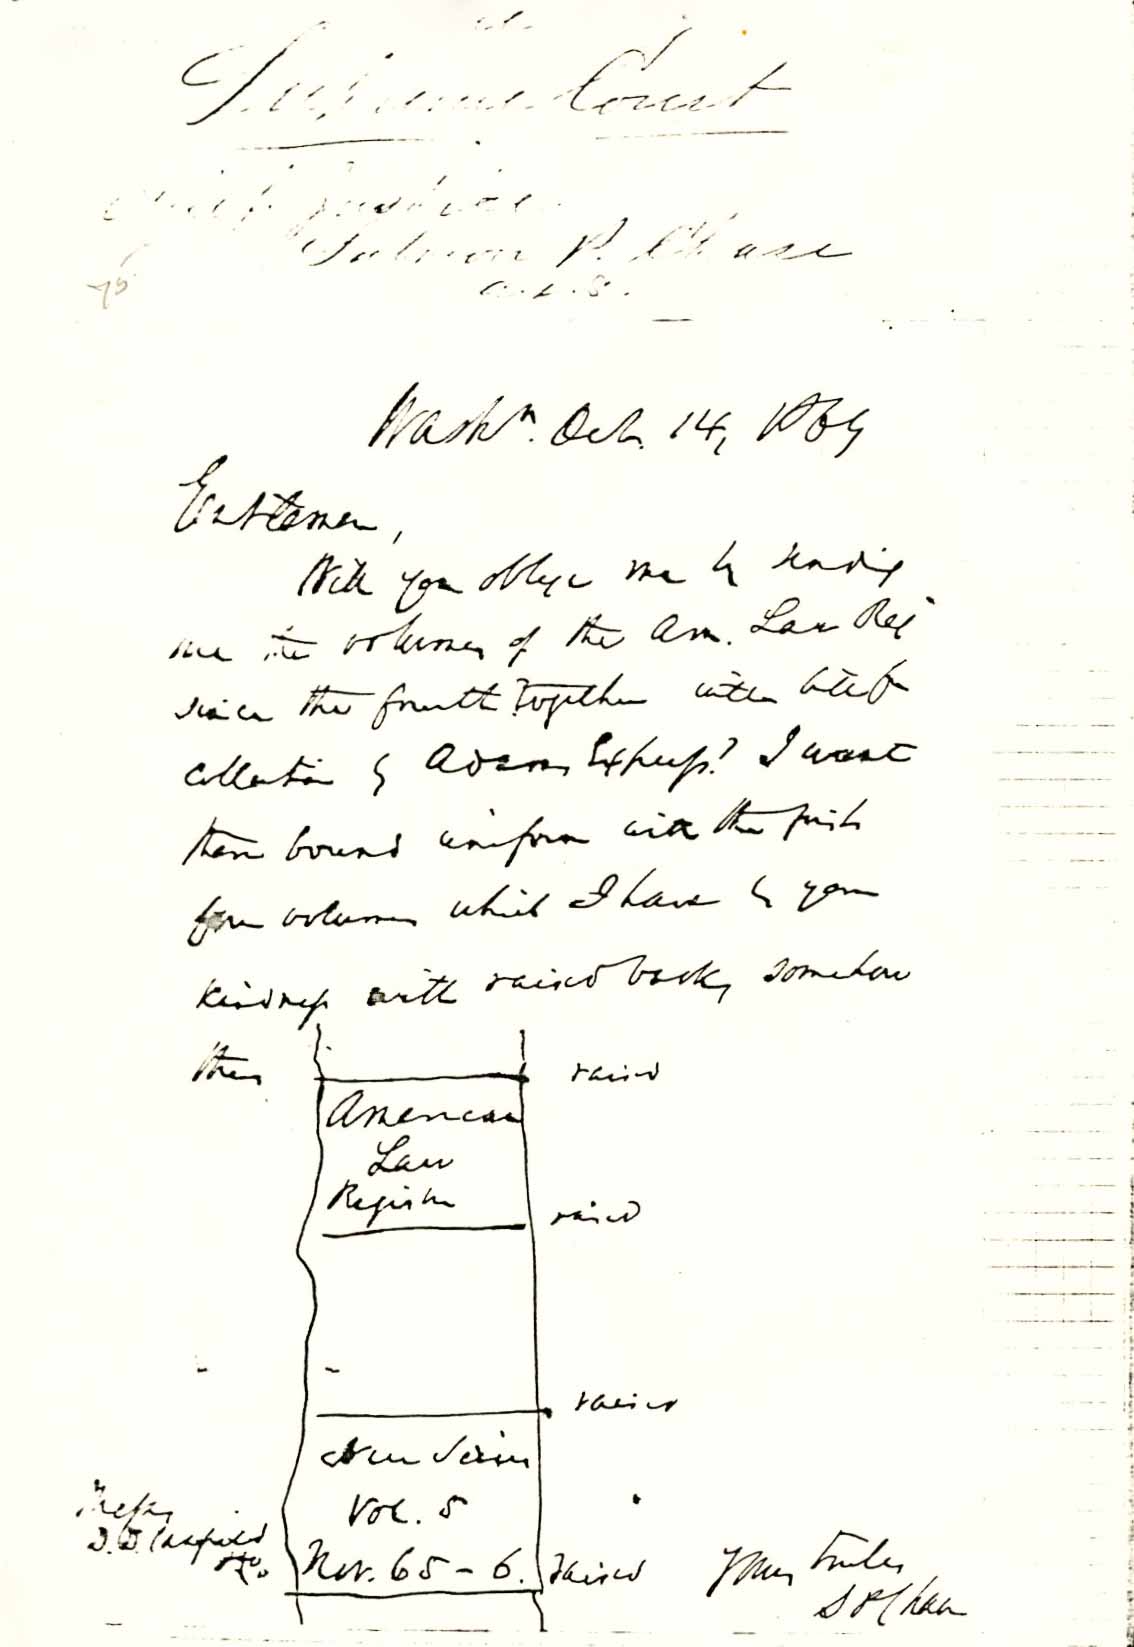 Supreme Court
Chief Justice
Salmon P. Chase
A.L.S.
Washn. Oct. 14, 1869
Gentlemen,
Will you oblige me by sending
me the volumes of the Am. Law Reg
since the fourth together with bill for
collection by Adams Express? I want
them bound uniform with the first
four volumes which I have by your
kindness with raised backs, somehow
thus
raised
American
Law
Register
raised
raised
New Series
Vol. 5
Nov. 65 - 6.
raised
Messrs
D. B. Canfield
&Co.
Yours truly
S P Chase